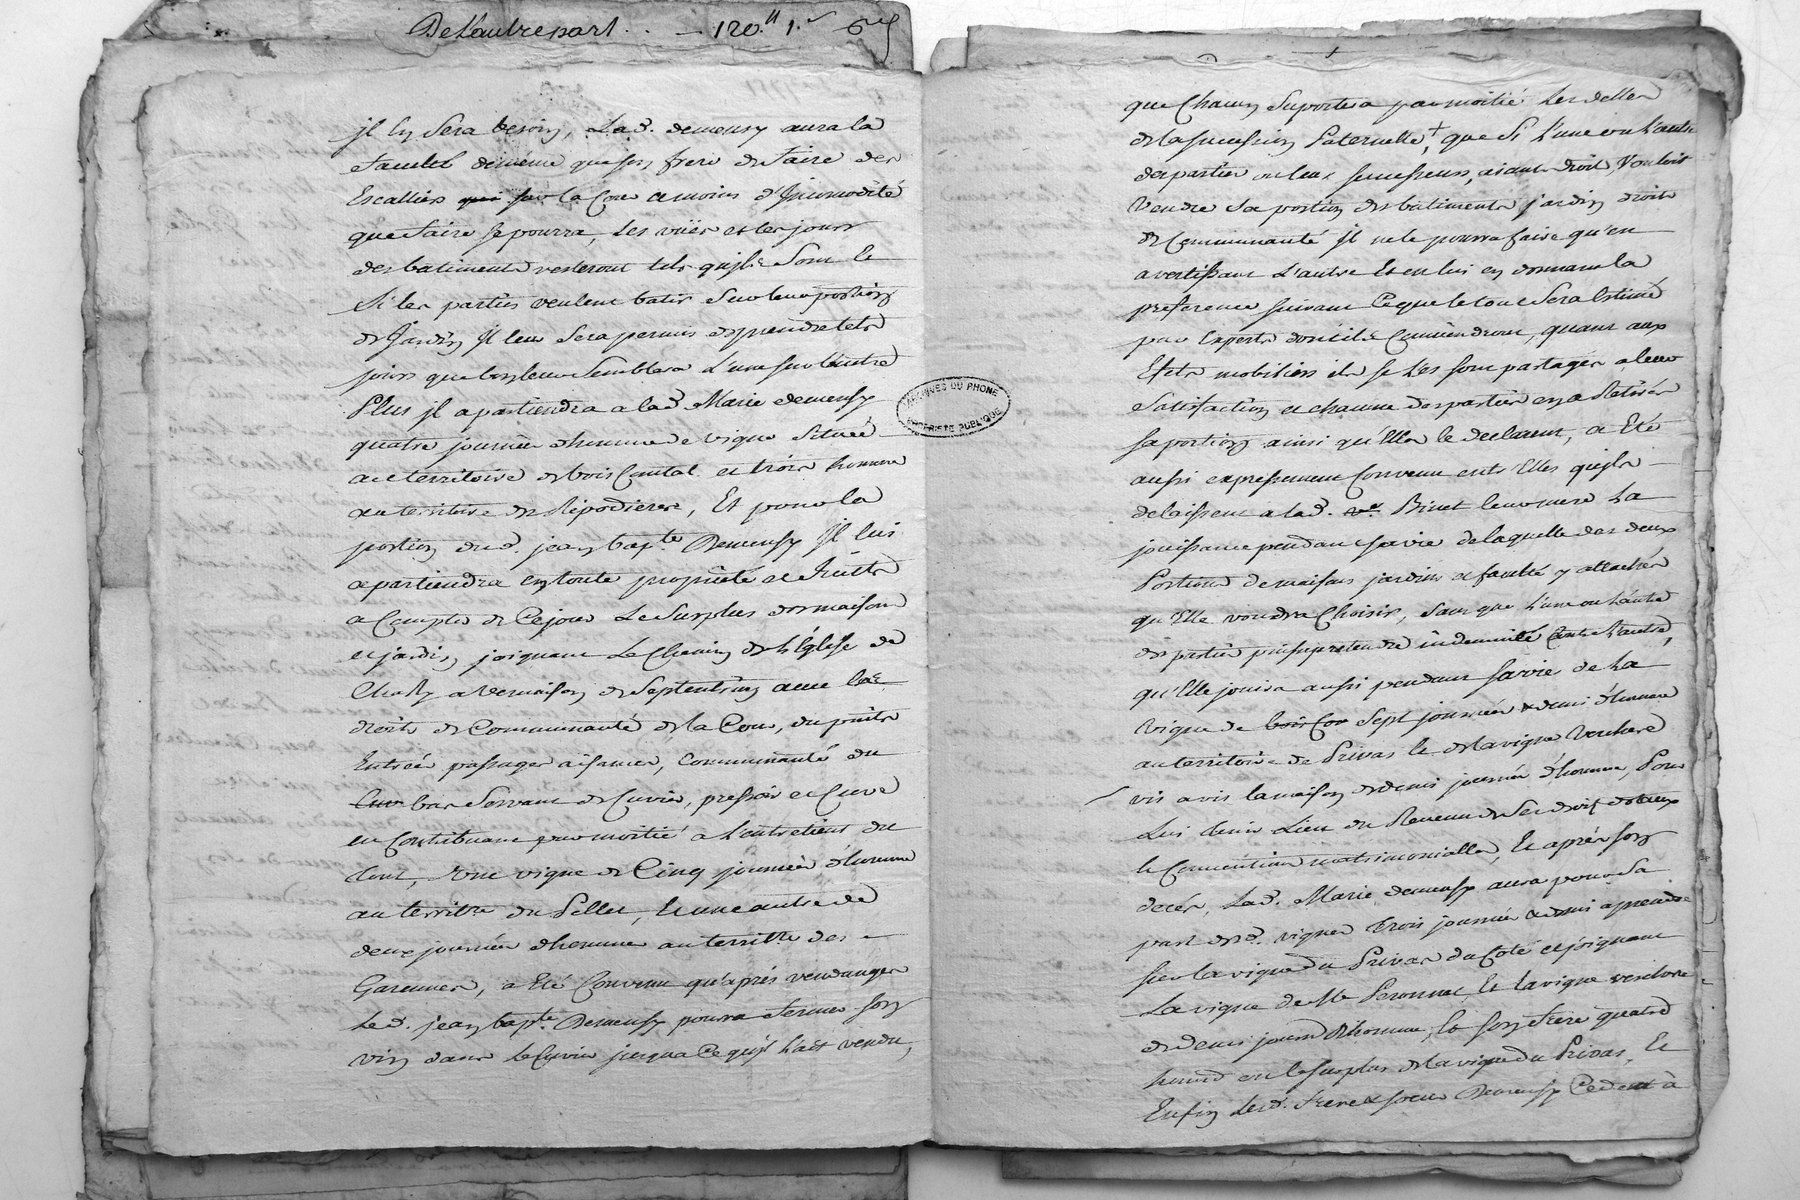 De Lautrepart . . — 120.ll 1.s 6 d
jl En Sera besoin, La d. demeusy aura la
faculté de même que son frere de faire des
Escalliers qui sur la Cour a moins d'Jncomodité
que faire se pourra, Les vües et les jours
des batiments resteront tels qu'jls Sont Et
Si les parties veulent batir Sur leur portion
de Jardin Jl leur Sera permis de prendre tels
jours que bon leur Semblera L'une sur l'autre
Plus jl apartiendra a la d. Marie demeusy
quatre journées d'homme de vigne Située
au territoire de bois Contal et trois homme
au territoire des Ripodieres, Et pour la
portion du d. jean bapte. Demeusy Jl lui
apartiendra en toute proprieté et fruits
a Compter de Ce jour Le Surplus des maisons
et jardin, joignant Le Chemin de L'Église de
Charly a Vernaison de Septentrion avec les
droits de Communauté de la Cour, du puits
Entrée passages aisances, Communauté du
bas Servant de Cuvier, pressoir et Cuve
en Contribuant par moitié a L'entretient du
tout, une vigne de Cinq journées d'homme
au territre du Pellet, Et une autre de
deux journées d'homme au territre des
Garennes, a Eté Convenu qu'aprés vendanges
Le d. jean bapte. Demeusy pourra fermer son
vin dans Le Cuvier jusqua Ce qu'jl l'ait vendu,
que Chacun Suportera par moitié Les dettes
de la succession Paternelle, + que Si L'une ou L'autre
des parties ou leurs successeurs, aiant droit, Vouloit
Vendre Sa portion des batiments jardin droits
de Communauté Jl ne le pourra faire qu'en
avertissant L'autre Et en lui en donnant la
preference suivant Ce que le tout Sera Estimé
par Experts dont ils Conviendront, quant aux
Efets mobiliers ils se Les sont partagés a leur
Satisfaction et chacune des parties en a Retirée
sa portion ainsi qu'Elles le declarent, a Eté
aussi expressement Convenu entr'Elles qu'jls
delaissent a la d. ve Binet leur mere La
jouissance pendant sa vie de laquelle des deux
Portions de maisons jardins et faculté y attachés
qu'Elle voudra Choisir, sans que L'une ou L'autre
des parties puisse pretendre indemnité Contre L'autre,
qu'Elle jouira aussi pendant sa vie de La
vigne de bois Con Sept journées & demi d'homme
au territoire de Privas Et de la vigne Verchere
vis avis la maison de demi journée d'homme, Pour
Lui tenir Lieu du Revenu de Ses droits dotaux
Et Conventions matrimonialles, Et après son
decès, La d. Marie demeusy aura pour Sa
part desd. vignes trois journées & demi a prendre
sur la vigne du Privas du Coté et joignant
La vigne de Me Peronnet, Et la vigne verchere
de demi journée d'homme, Et son frere quatre
hommes en le surplus de la vigne du Privas, Et
Enfin Lesd. frere & soeur Demeusy Cedent à
ARCHIVES DU RHONE
PROPRIETE PUBLIQUE